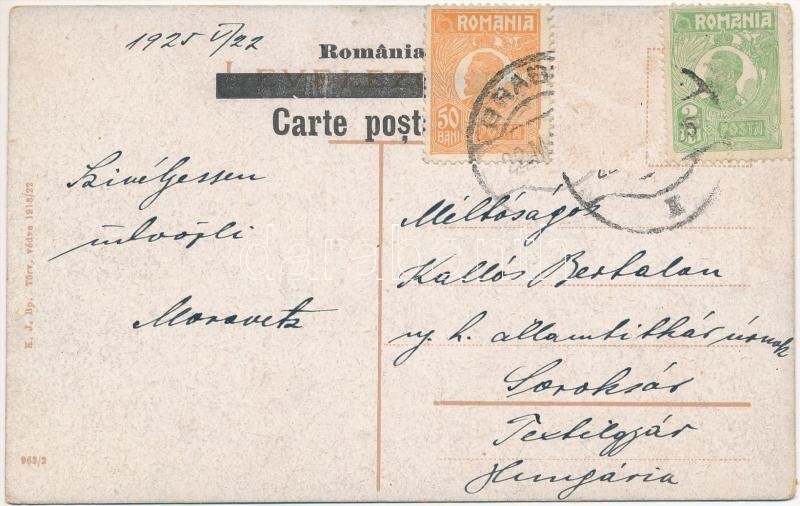 1925 V/22
România
LEVELEZ
Carte poșt
ROMANIA
50
BANI
POSTA
ROMANIA
2
POSTA
Szivélyessen
üdvözli
Moravetz
Méltóságos
Kallós Bertalan
ny. h. államtitkár úrnak
Soroksár
Textilgyár
Hungária
K. J. Bp. Törv. védve 1918/22
963/2
darabanth